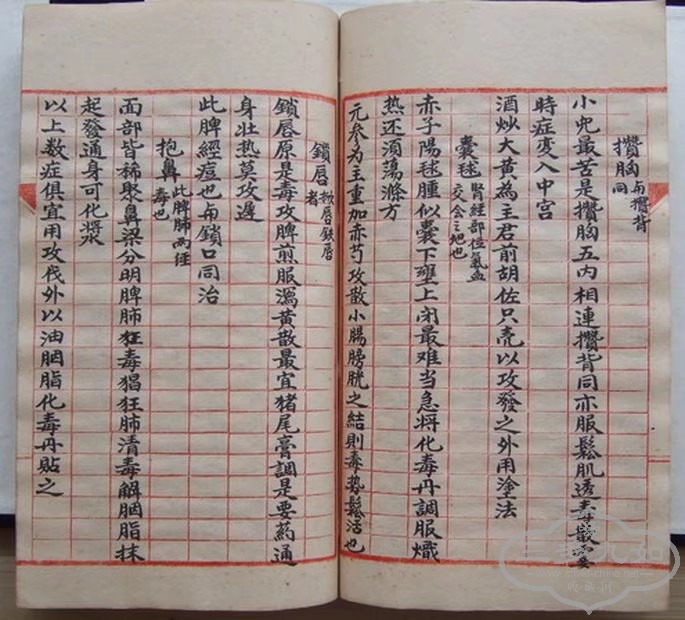 攒胸 与攒背同
小児最苦是攒胸五内相連攒背同亦服鬆肌透毒散要
時症变入中宫
酒炒大黄為主君前胡佐只壳以攻發之外用塗法
囊毬 腎経部位氣血交会之地也
赤子陽毬腫似囊下壅上闭最难当急将化毒丹調服熾
热还須蕩滌方
元参为主重加赤芍攻散小腸膀胱之结則毒势鬆活也
鎖唇 鉄唇者
鎖唇原是毒攻脾煎服瀉黄散最宜猪尾膏調是要药通
身壮热莫攻邊
此脾經痘也与鎖口同治
抱鼻 此脾肺两经毒也
面部皆稀聚鼻梁分明脾肺狂毒猖狂肺清毒解胭脂抹
起發通身可化漿
以上数症俱宜用攻伐外以油胭脂化毒丹貼之